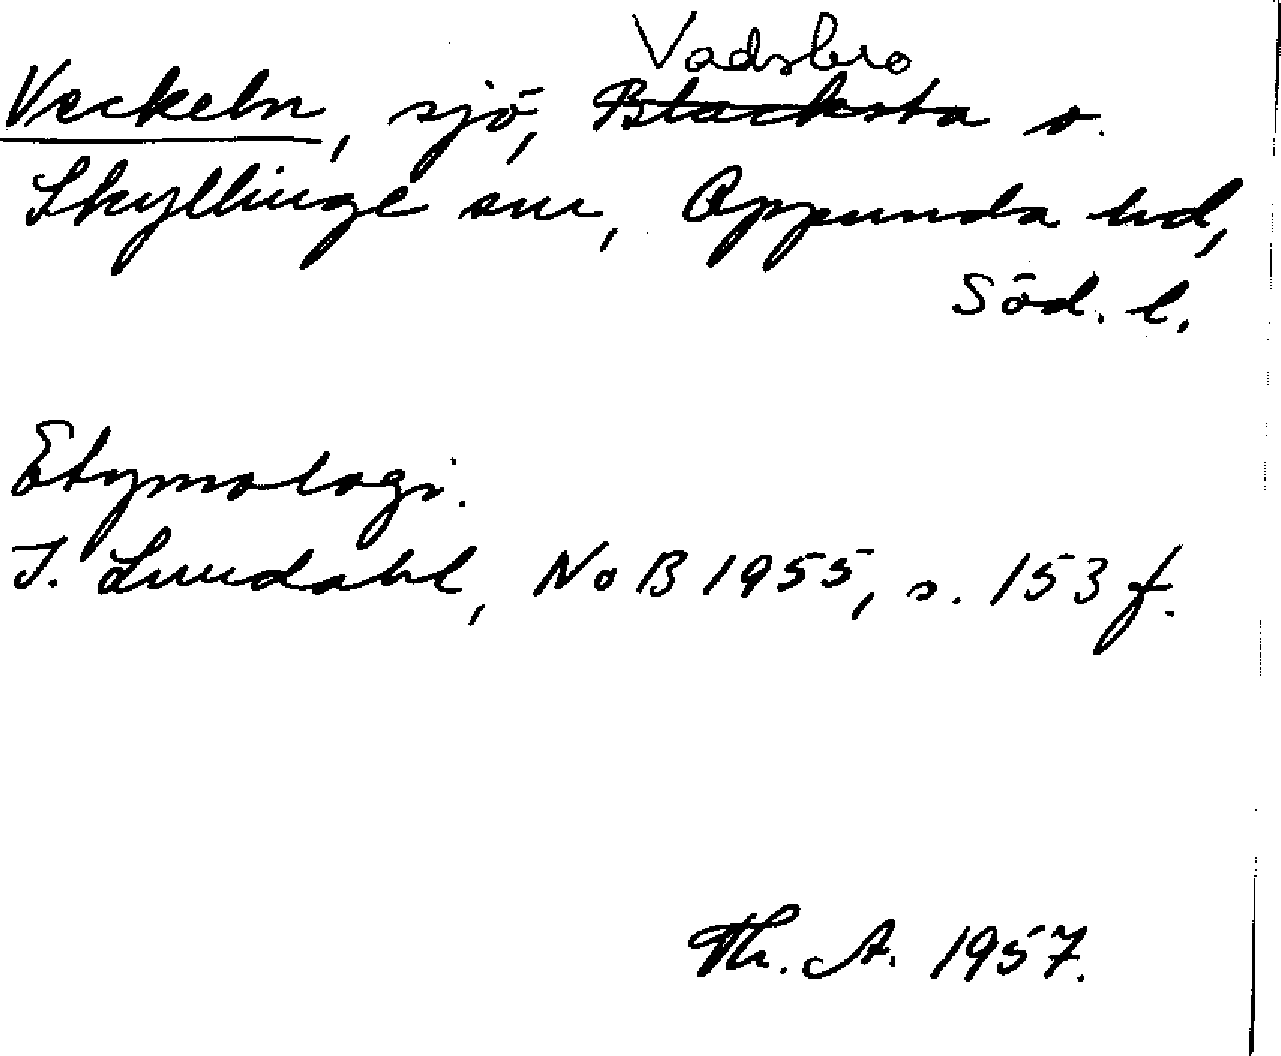 Vadsbro
Veckeln, sjö, Blacksta o.
Skyllinge snr, Oppunda hd,
Söd. l.
Etymologi.
I. Lundahl, NoB 1955, s. 153 f.
Th. A. 1957.